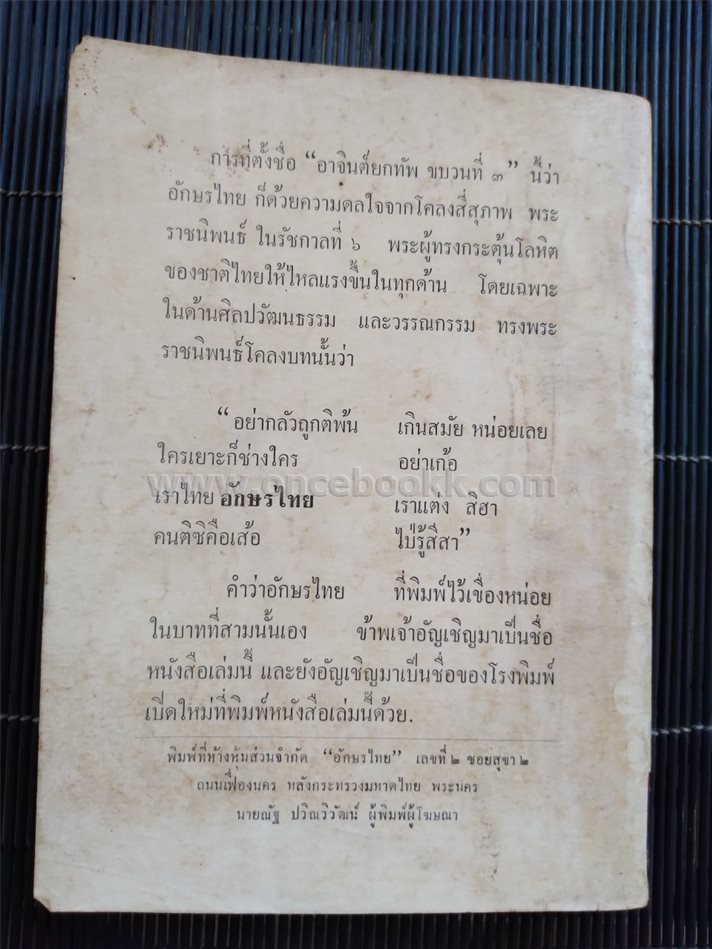 การที่ตั้งชื่อ “อาจินต์ยกทัพ ขบวนที่ ๓” นี้ว่า
อักษรไทย ก็ด้วยความดลใจจากโคลงสี่สุภาพ พระ
ราชนิพนธ์ ในรัชกาลที่ ๖ พระผู้ทรงกระตุ้นโลหิต
ของชาติไทยให้ไหลแรงขึ้นในทุกด้าน โดยเฉพาะ
ในด้านศิลปวัฒนธรรม และวรรณกรรม ทรงพระ
ราชนิพนธ์โคลงบทนั้นว่า
“อย่ากลัวถูกติพ้น เกินสมัย หน่อยเลย
ใครเยาะก็ช่างใคร อย่าเก้อ
www.oncebookk.com
เราไทย อักษรไทย เราแต่ง สิฮา
คนติซิคือเส้อ ไป่รู้สีสา”
คำว่าอักษรไทย ที่พิมพ์ไว้เขื่องหน่อย
ในบาทที่สามนั้นเอง ข้าพเจ้าอัญเชิญมาเป็นชื่อ
หนังสือเล่มนี้ และยังอัญเชิญมาเป็นชื่อของโรงพิมพ์
เปิดใหม่ที่พิมพ์หนังสือเล่มนี้ด้วย.
พิมพ์ที่ห้างหุ้นส่วนจำกัด “อักษรไทย” เลขที่ ๒ ซอยสุขา ๒
ถนนเฟื่องนคร หลังกระทรวงมหาดไทย พระนคร
นายณัฐ ปวิณวิวัฒน์ ผู้พิมพ์ผู้โฆษณา